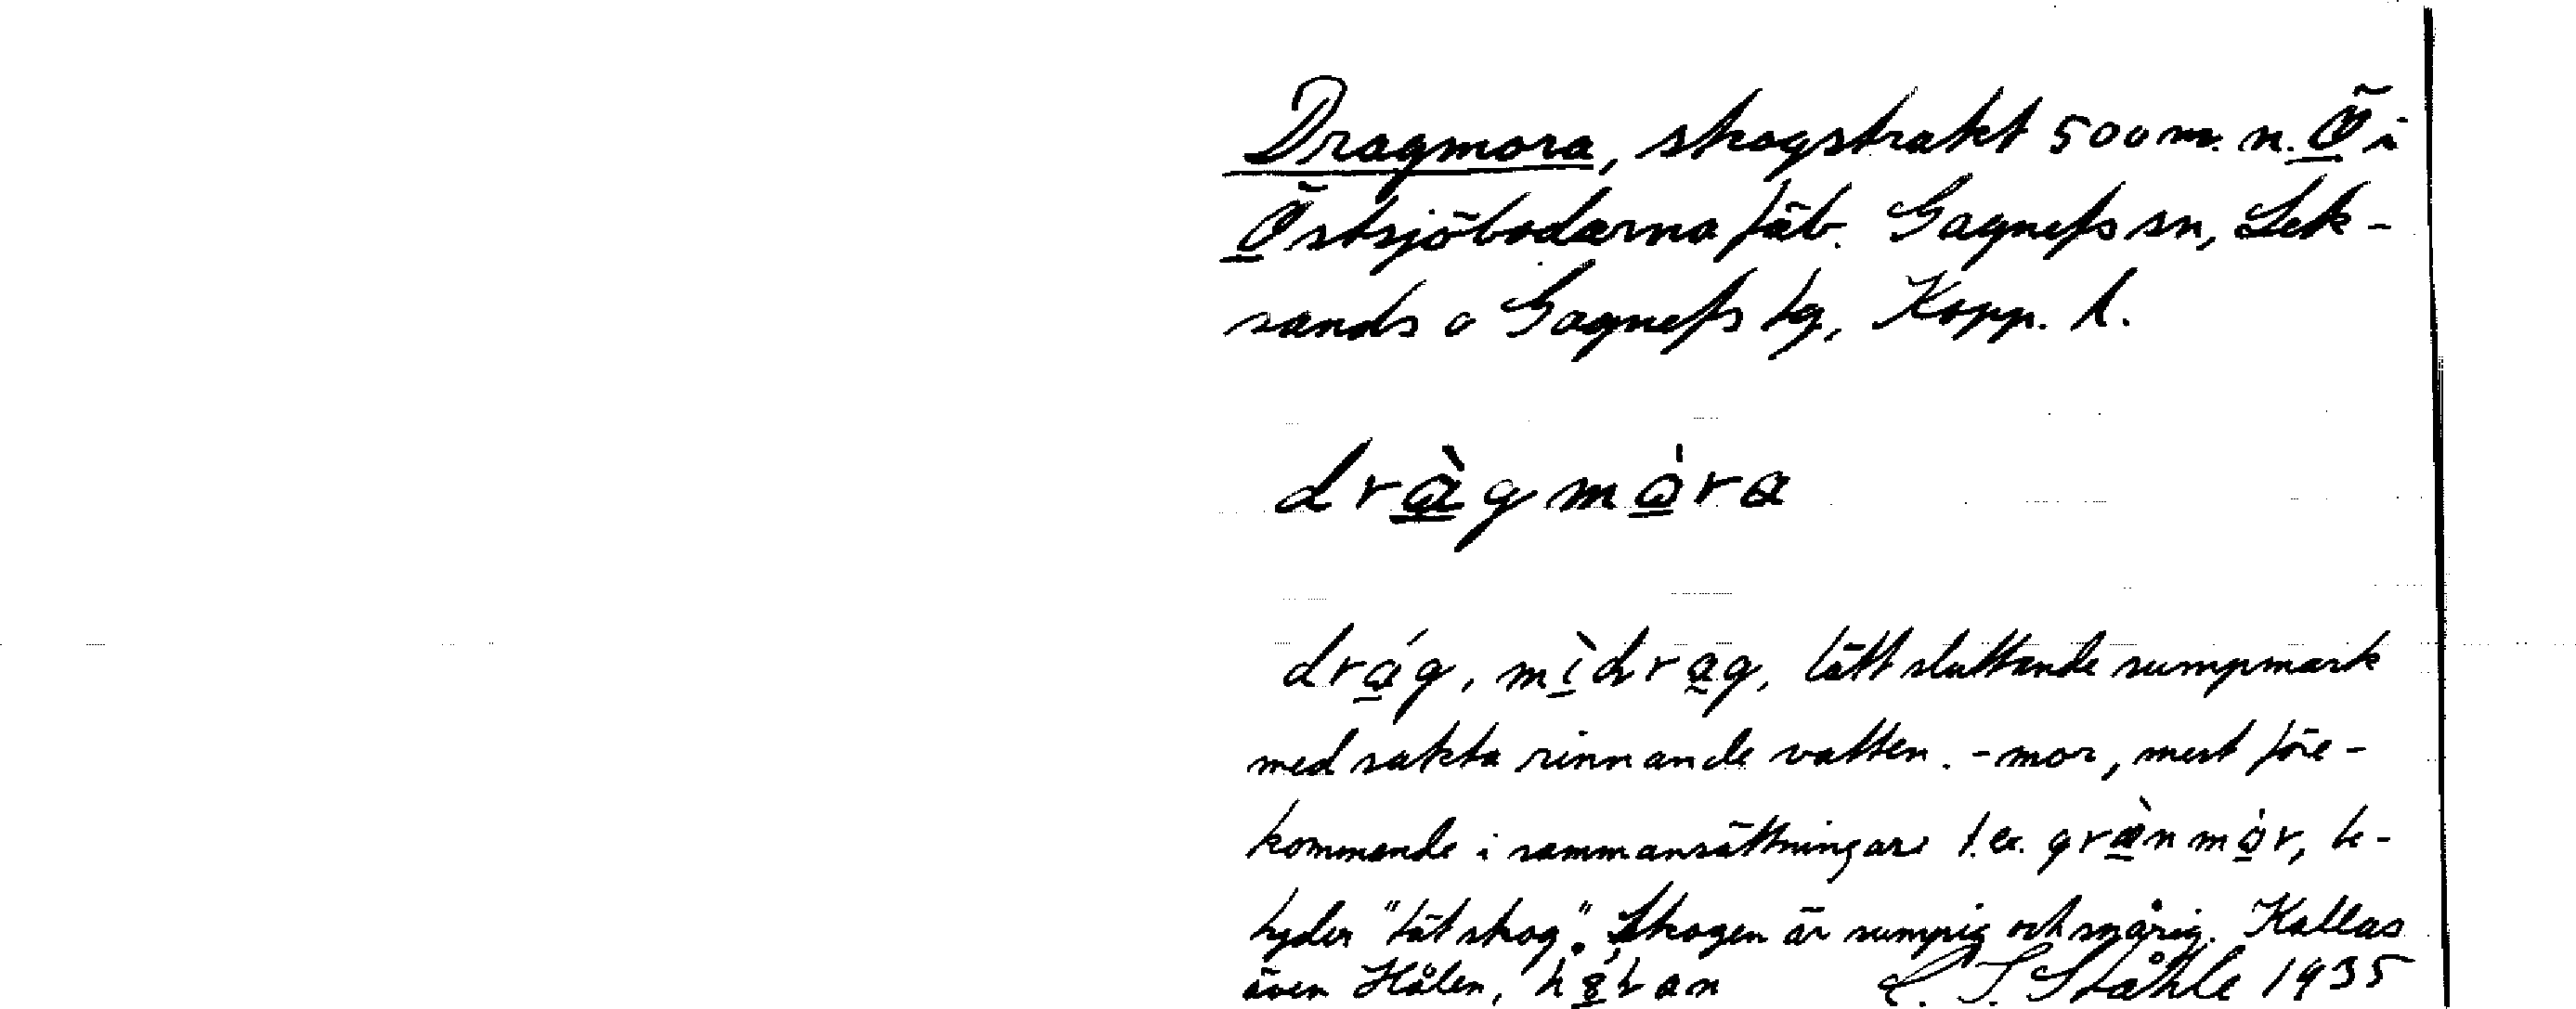 Dragmora, skogstrakt 500 m. n. Ö i
Östsjöbodarna fäb. Gagnefs sn, Lek-
sands o Gagnefs tg, Kopp. l.
dràgmòra
drág, mìdrag, lätt sluttande sumpmark
med sakta rinnande vatten. -mor, mest före-
kommande i sammansättningar t. ex. grànmòr, be-
tyder "tät skog". Skogen är sumpig och snårig. Kallas
även Hålen, C. I. Ståhle 1935